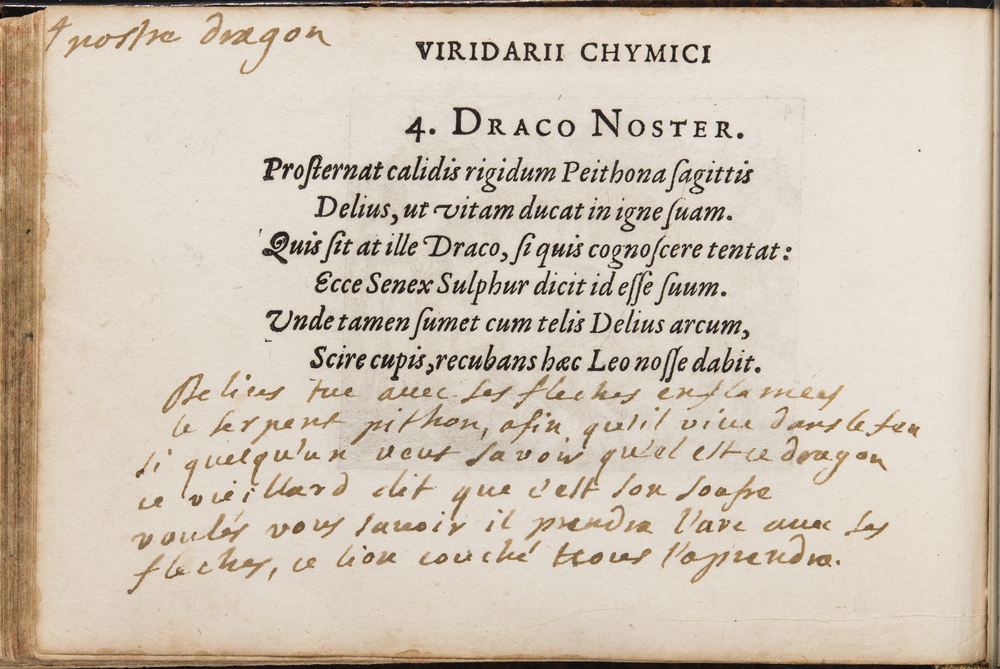 4 nostre dragon
VIRIDARII CHYMICI
4. DRACO NOSTER.
Proſternat calidis rigidum Peithona ſagittis
Delius, ut vitam ducat in igne ſuam.
Quis ſit at ille Draco, ſi quis cognoſcere tentat:
Ecce Senex Sulphur dicit id eſſe ſuum.
Unde tamen ſumet cum telis Delius arcum,
Scire cupis, recubans hæc Leo noſſe dabit.
Delius tue avec ses fleches enflamées
le serpent pithon, afin qu'il vive dans le feu
si quelqu'un veut savoir qu'el est ce dragon
ce vieillard dit que c'est son soufre
voulés vous savoir il prendra l'arc avec ses
fleches, ce lion couché vous l'aprendra.